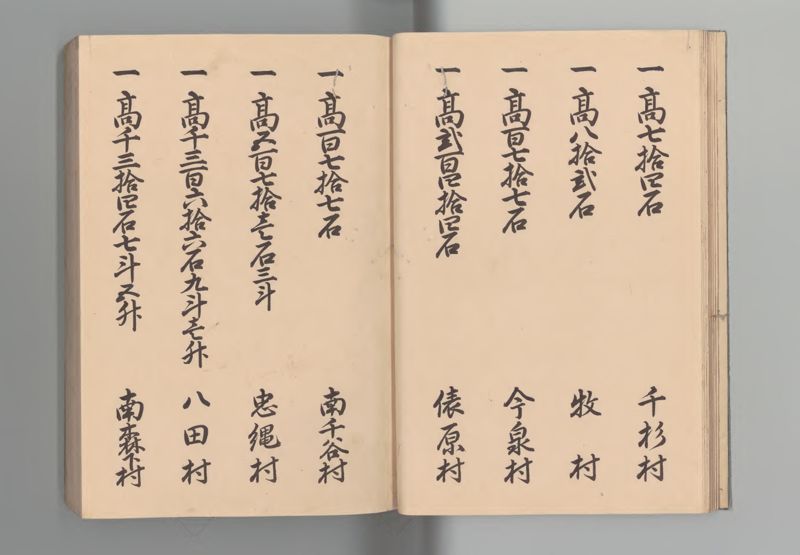 一高七拾四石 千杉村
一高八拾弐石 牧村
一高百七拾七石 今泉村
一高弐百四拾四石 俵原村
一高百七拾七石 南千谷村
一高五百七拾壱石三斗 忠縄村
一高千三百六拾六石九斗壱升 八田村
一高千三拾四石七斗五升 南森下村